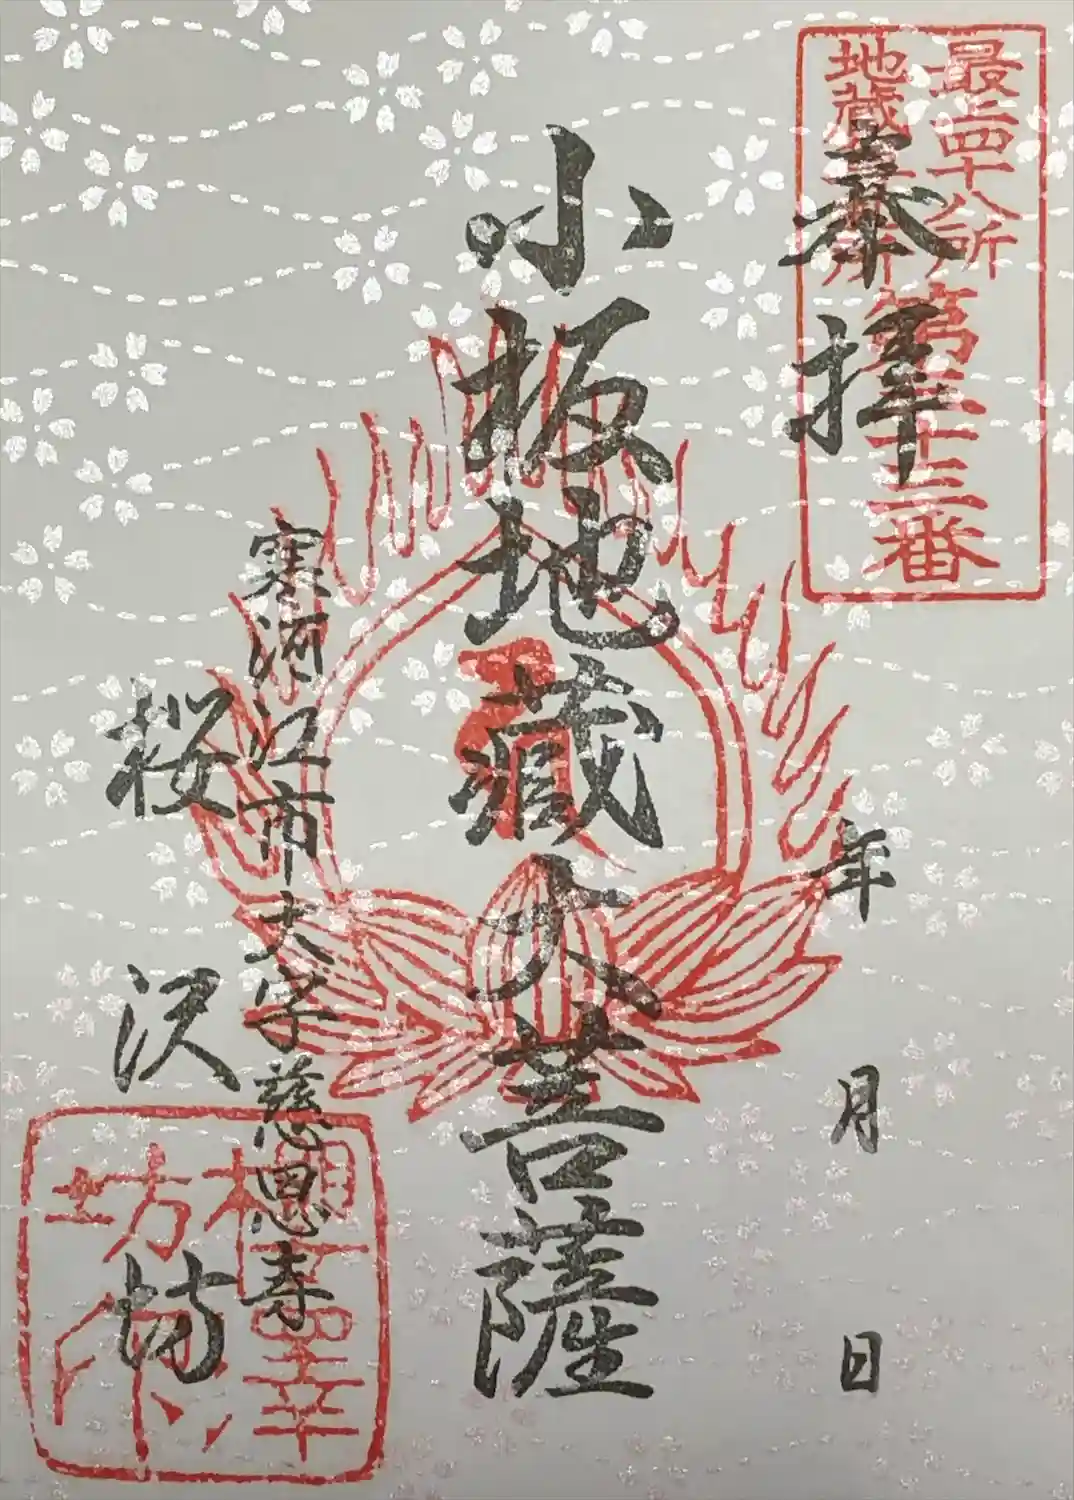 最上四十八所
地蔵尊札所
第三十三番
奉拝
年 月 日
小板地蔵大菩薩
寒河江市大字慈恩寺
桜沢坊
櫻澤
坊印